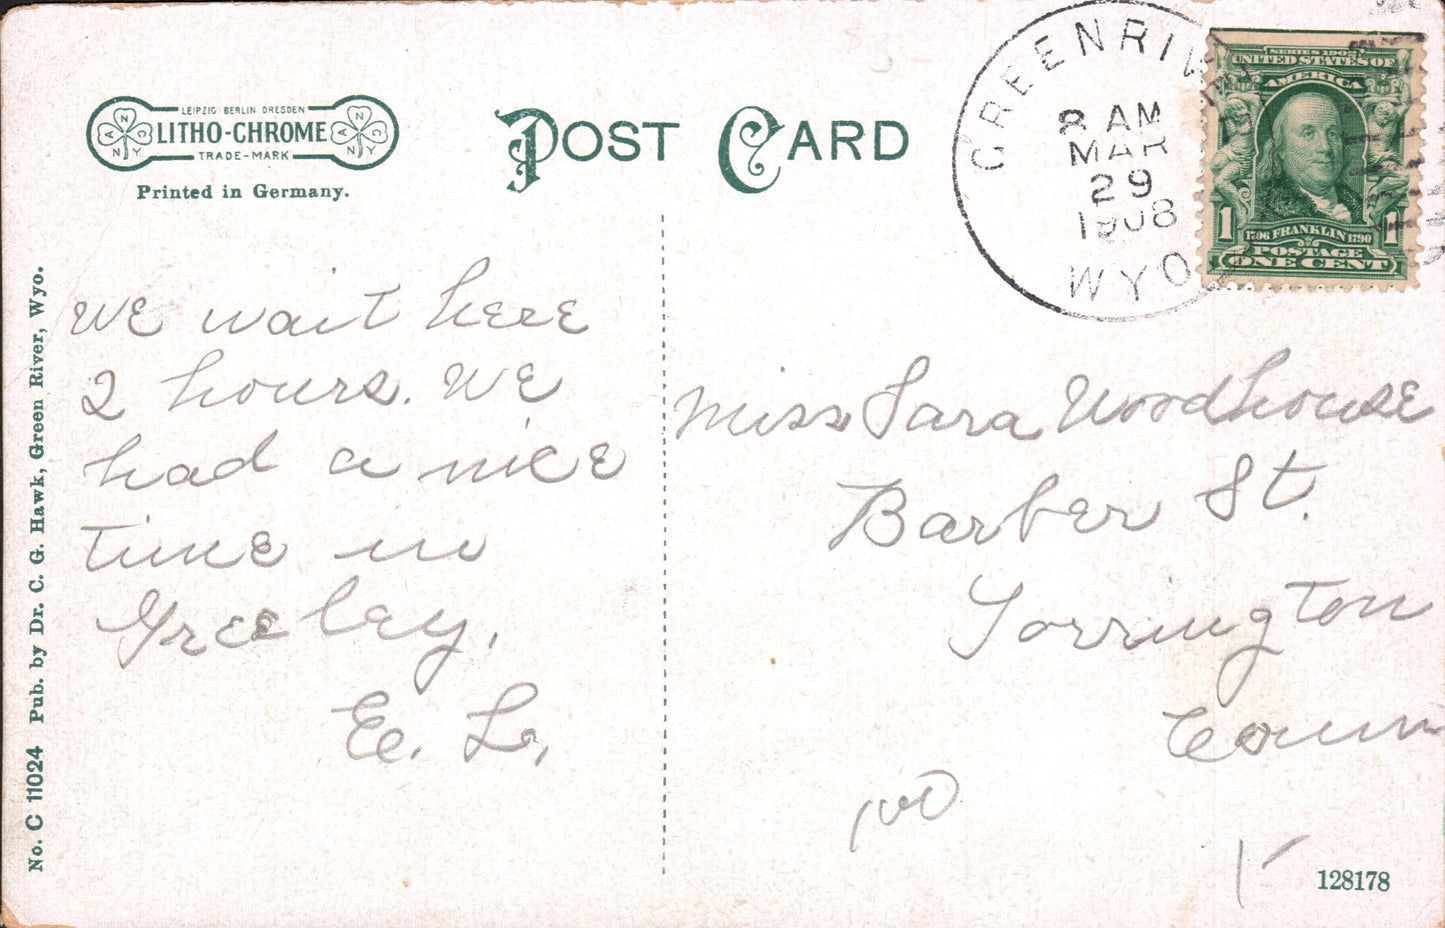 LEIPZIG BERLIN DRESDEN
LITHO-CHROME
TRADE-MARK
Printed in Germany.
POST CARD
GREENRIV
8 AM
MAR
29
1908
WYO
SERIES 1902
UNITED STATES OF
AMERICA
1 1706 FRANKLIN 1790 1
POSTAGE
ONE CENT
No. C 11024 Pub. by Dr. C. G. Hawk, Green River, Wyo.
We wait here
2 hours. We
had a nice
time in
Greeley.
E. L.
Miss Sara Woodhouse
Barber St.
Torrington
Conn
128178